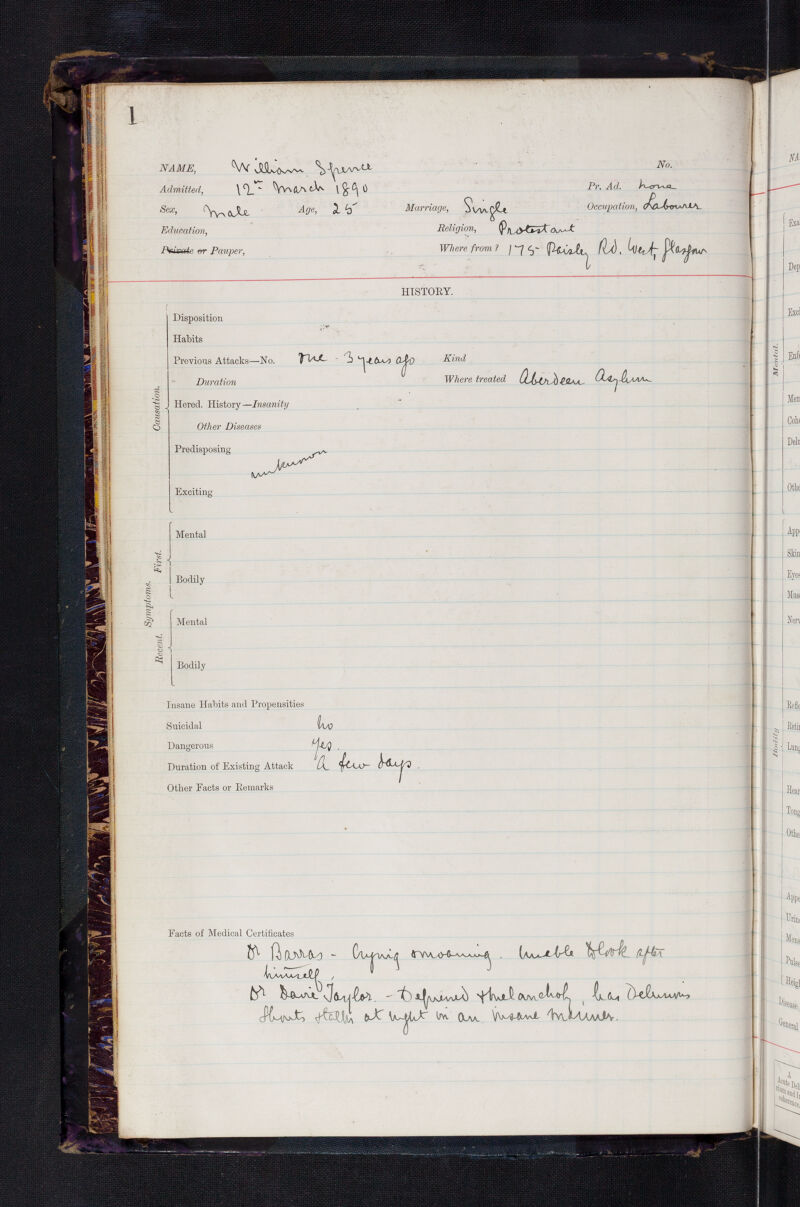 1
NAME, William Spence No.
Admitted, 12th March 1890 Pr. Ad. None
Sex, Male Age, 25 Marriage, Single Occupation, Labourer
Education, Religion, Protestant
Private or Pauper, Where from? 175 Paisley Rd. West, Glasgow
HISTORY.
Causation.
Disposition
Habits
Previous Attacks—No. One - 3 years ago Kind
Duration Where treated Aberdeen Asylum
Hered. History—Insanity
Other Diseases
Predisposing
unknown
Exciting
Symptoms.
First.
Mental
Bodily
Recent.
Mental
Bodily
Insane Habits and Propensities
Suicidal No
Dangerous Yes.
Duration of Existing Attack A few days.
Other Facts or Remarks
Facts of Medical Certificates
Dr Barras - Crying & moaning. Unable to look after
himself,
Dr David Taylor. - Depressed & melancholy, has Delusions
Shouts & talks at night in an insane manner.
NA
Mental.
Exa
Dep
Exci
Enfe
Mem
Cohe
Delu
Othe
Bodily
App
Skin
Eyes
Mus
Nerv
Refle
Reti
Lung
Hear
Tong
Othe
Appe
Urin
Mens
Pulse
Heigh
Disease
General
A
Acute Deli